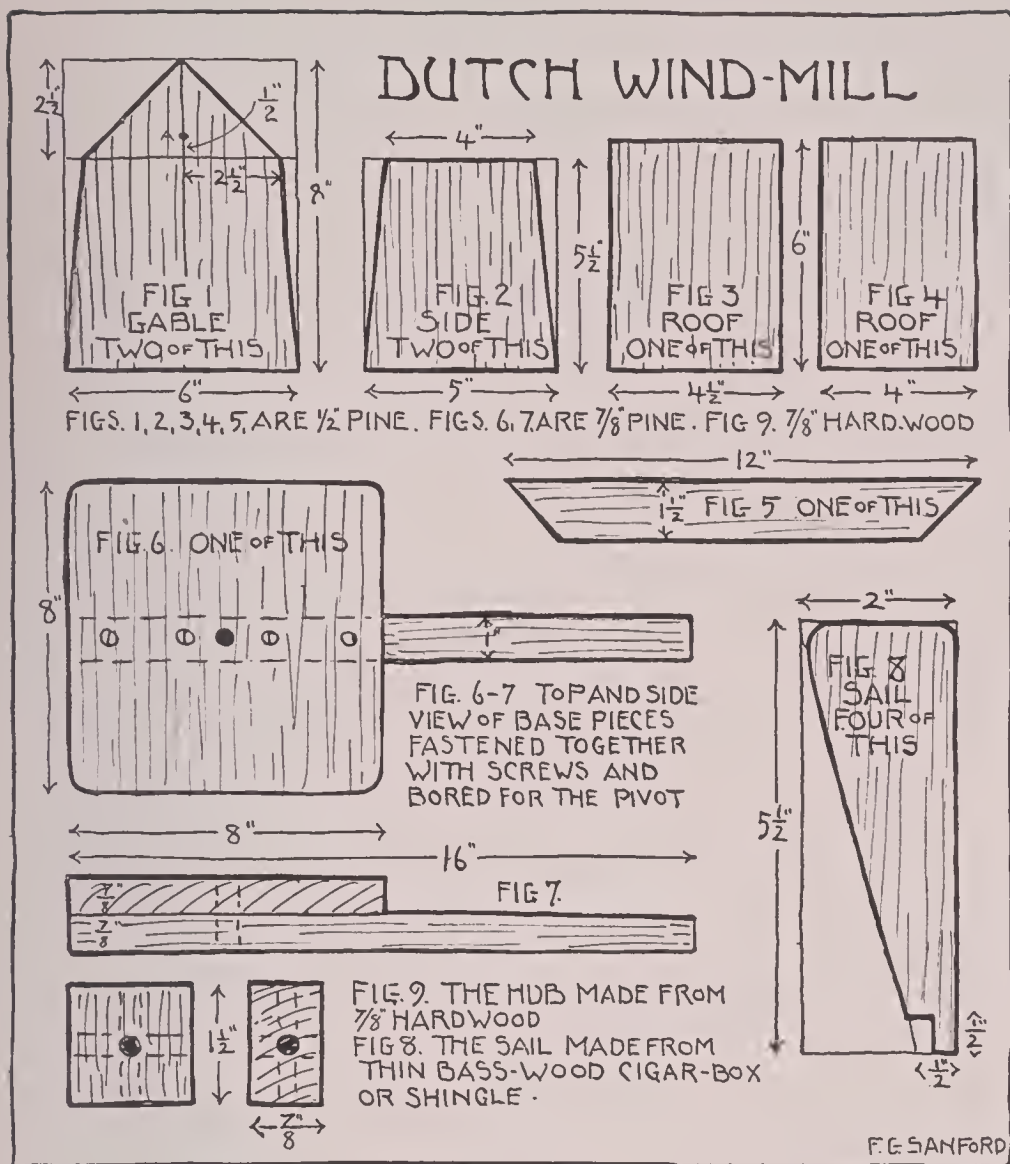 DUTCH WIND-MILL
2½"
A
½"
2½"
8"
FIG 1
GABLE
TWO OF THIS
6"
4"
FIG. 2
SIDE
TWO OF THIS
5½"
5"
FIG 3
ROOF
ONE OF THIS
6"
4½"
FIG 4
ROOF
ONE OF THIS
4"
FIGS. 1, 2, 3, 4, 5, ARE ½" PINE. FIGS. 6, 7, ARE ⅞" PINE. FIG 9. ⅞" HARD.WOOD
12"
1½" FIG 5 ONE OF THIS
FIG. 6. ONE OF THIS
8"
1"
FIG. 6-7 TOP AND SIDE
VIEW OF BASE PIECES
FASTENED TOGETHER
WITH SCREWS AND
BORED FOR THE PIVOT
8"
16"
⅞"
⅞"
FIG 7.
2"
FIG. 8
SAIL
FOUR OF
THIS
5½"
½"
½"
1½"
⅞"
FIG. 9. THE HUB MADE FROM
⅞" HARDWOOD
FIG 8. THE SAIL MADE FROM
THIN BASS-WOOD CIGAR-BOX
OR SHINGLE.
F.G. SANFORD